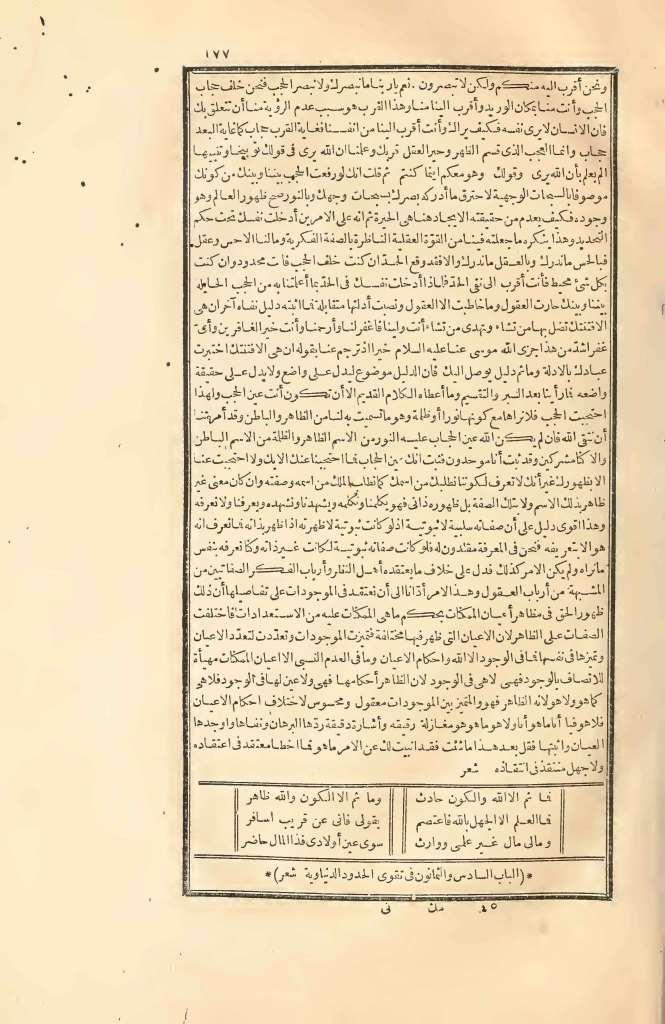 ١٧٧
ونحن أقرب اليه منكم ولكن لا تبصرون . نعم يا ربنا ما نبصرك ولا نبصر الحجب فنحن خلف حجاب
الحجب وأنت منا بمكان الوريد وأقرب الينا منا وهذا القرب هو سبب عدم الرؤية منا أن تتعلق بك
فان الانسان لا يرى نفسه فكيف يراك وأنت أقرب الينا من أنفسنا فغاية القرب حجاب كما غاية البعد
حجاب وانما العجب الذى قسم الظهر وحير العقل قربك وعلمنا ان الله يرى فى قولك توبيخا وتنبيها
ألم يعلم بأن الله يرى وقولك وهو معكم أينما كنتم ثم قلت انك لو رفعت الحجب بيننا وبينك من كونك
موصوفا بالسبحات الوجهية لاحترق ما أدركه بصرك بسبحات وجهك وبالنور صح ظهور العالم وهو
وجوده فكيف يعدم من حقيقته الايجاد هنا هى الحيرة ثم انه على الامرين أدخلت نفسك تحت حكم
التحديد وهذا ينكره ما جعلته فينا من القوّة العقلية الناظرة بالصفة الفكرية وما لنا الا حس وعقل
فبالحس ما ندرك وبالعقل ما ندرك والا فقد وقع الحد ان كنت خلف الحجب فأنت محدود وان كنت
بكل شئ محيط فأنت أقرب الى نفى الحد فلماذا أدخلت نفسك فى الحد بما أعلمتنا به من الحجب الحايلة
بيننا وبينك حارت العقول وما خاطبت الا العقول ونصبت أدلتها متقابلة فما اثبته دليل نفاه آخر ان هى
الا فتنتك تضل بها من تشاء وتهدى من تشاء أنت ولينا فاغفر لنا وارحمنا وأنت خير الغافرين وأىّ
غفر أشدّ من هذا جزى الله موسى عنا عليه السلام خيرا اذ ترجم عنا بقوله ان هى الا فتنتك اختبرت
عبادك بالادلة وما ثم دليل يوصل اليك فان الدليل موضوع ليدل على واضع ولا يدل على حقيقة
واضعه فما رأينا بعد السبر والتقسيم وما أعطاه الكلام القديم الا أن تكون أنت عين الحجب ولهذا
احتجبت الحجب فلا نراها مع كونها نورا أو ظلمة وهو ما تسميت به لنا من الظاهر والباطن وقد أمرتنا
أن نتقى الله فان لم يكن الله عين الحجاب عليه النور من الاسم الظاهر والظلمة من الاسم الباطن
والا كنا مشركين وقد ثبت أنا موحدون فثبت انك عين الحجاب فما احتجبنا عنك الا بك ولا احتجبت عنا
الا بظهورك غير أنك لا تعرف لكوننا نطلبك من اسمك كما نطلب الملك من اسمه وصفته وان كان معنى غير
ظاهر بذلك الاسم ولا بتلك الصفة بل ظهوره ذاتى فهو يكلمنا ونكلمه ويشهدنا ونشهده ويعرفنا ولا نعرفه
وهذا أقوى دليل على أن صفاته سلبية لا ثبوتية اذ لو كانت ثبوتية لاظهرته اذا ظهر بذاته فما نعرف انه
هو الا بتعريفه فنحن فى المعرفة مقلدون له فلو كانت صفاته ثبوتية لكانت عين ذاته وكنا نعرفه بنفس
ما نراه ولم يكن الامر كذلك فدل على خلاف ما يعتقده أهل النظر وأرباب الفكر الصفاتيين من
المشبهة من أرباب العقول وهذا الامر أدّانا الى أن نعتقد فى الموجودات على تفاصيلها أن ذلك
ظهور الحق فى مظاهر أعيان الممكنات بحكم ما هى الممكنات عليه من الاستعدادات فاختلفت
الصفات على الظاهر لان الاعيان التى ظهر فيها مختلفة فتميزت الموجودات وتعدّدت لتعدّد الاعيان
وتميزها فى نفسها فما فى الوجود الا الله وأحكام الاعيان وما فى العدم الشئ الا اعيان الممكنات مهيأة
للاتصاف بالوجود فهى لا هى فى الوجود لان الظاهر أحكامها فهى ولا عين لها فى الوجود فلا هى
كما هو ولا هو لانه الظاهر فهو والمتميز بين الموجودات معقول ومحسوس لاختلاف أحكام الاعيان
فلا هو فيا أنا ما هو أنا ولا هو ما هو هو مغازلة رقيقة وأشارة دقيقة ردّها البرهان ونفاها وأوجدها
العيان وأثبتها فقل بعد هذا ما شئت فقد أبنت لك عن الامر ما هو فما أخطأ معتقد فى اعتقاده
ولا جهل منتقد فى انتقاده شعر
فما ثم الا الله والكون حادث وما ثم الا الكون والله ظاهر
فما العلم الا الجهل بالله فاعتصم بقولى فانى عن قريب أسافر
وما لى مال غير علمى ووارث سوى عين أولادى فذا المال حاضر
* (الباب السادس والثمانون فى تقوى الحدود الدنياوية شعر) *
٤٥ مك نى